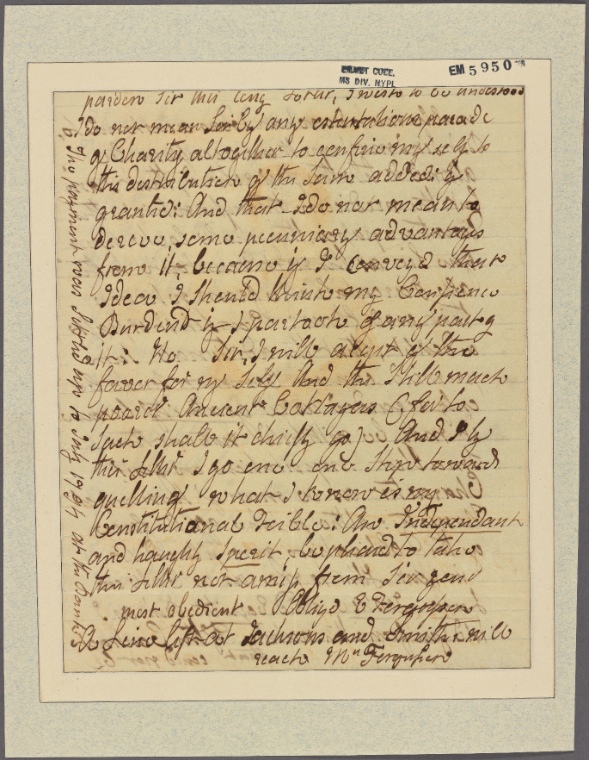 EMMET COLL.
MS DIV. NYPL
EM 5950
pardon Sir this long Letter, I wish to be understood
I do not mean Sir by any ostentatious parade
of Charity altogether to confine my self to
this distribution of the Sum asked, if
granted: And that I do not mean to
some pecuniary advantages
from it, because if I convey'd that
Idea I should think my Consience
Burdend if I partook of any part of
it: No. Sir, I will accept of the
favor for my Self And the Still much
poorer Ancient Cottagers ( for to
Such shall it chiefly go) And If by
this Letter I go one Step toward
quelling what I know is my
Constitutional Foible: An Independant
and haughty Spirit be pleased to take
this Letter not amiss from Sir your
most obedient Obliged E Fergusson
A Line left at Jacksons and Smiths will
reach Mrs Fergusson
The payment was up to July 1784 at the Bank